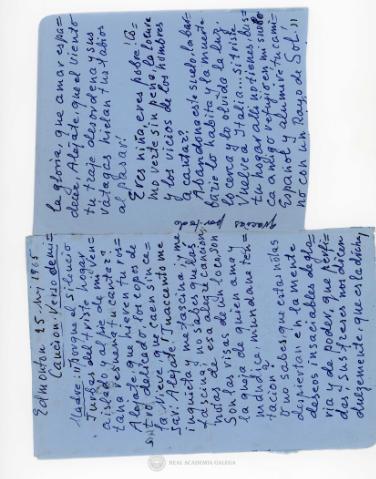 Edmonton 25-Maj 1965
Canción - Verso de mi
Madre: "¡Porque el silencio
Turbas del triste hogar
aislado y al pie de mi ven-
tana resuena tu cantar?
Aléjate que hieren tu ros-
tro, delicado los copos de
la nieve que caen sin ce-
sar. Aléjate Tu acento me
inquieta y me fascina, y me
fascina; no sabes que las
notas de esa alegre cancion,
Son las risas de un loco, son
la queja de quien ama y
maldice mundana ten-
tacion
O no sabes que estas notas
despiertan en la mente
deseos insaciables de glo-
ria y de poder, que perfi-
das y sus nos dicen
dulzemente que es la dicha,
la gloria, que amar es pa-
decer. Aléjate, que el viento
tu traje desordena y sus
ráfagas hielan tus labios
al pasar!
Eres niña, eres pobre! Co-
mo verte sin pena, la locura
y los vicios de los hombres
a cantar?
Abandona este suelo, la bar-
barie lo habita y la muerte
lo cerca y lo olvida la luz.
Vuelve a Italia... si triste
tu hogar allí no tienes, bus-
ca amigo refugio en mi suelo
Español y alumbre tu cami-
no con un Rayo de Sol!"
gracias por todo
REAL ACADEMIA GALEGA